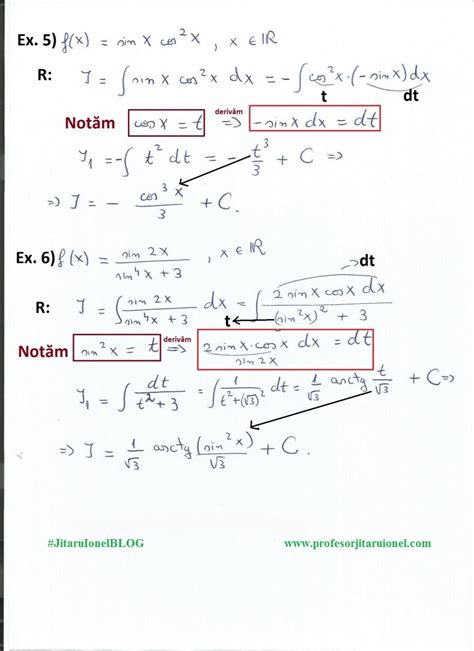 Ex. 5) f(x) = sin x cos²x , x ∈ ℝ
R: I = ∫ sin x cos²x dx = -∫ cos²x · (-sin x) dx
t dt
Notăm cos x = t derivăm => -sin x dx = dt
I₁ = -∫ t² dt = - t³/3 + C =>
=> I = - cos³x/3 + C.
Ex. 6) f(x) = sin 2x / sin⁴x + 3 , x ∈ ℝ
dt
R: I = ∫ sin 2x / sin⁴x + 3 dx = ∫ 2 sin x cos x dx / (sin²x)² + 3
t
Notăm sin²x = t derivăm => 2 sin x · cos x dx = dt
sin 2x
I₁ = ∫ dt / t² + 3 = ∫ 1 / t² + (√3)² dt = 1/√3 arctg t/√3 + C =>
=> I = 1/√3 arctg (sin²x)/√3 + C.
#JitaruIonelBLOG www.profesorjitaruionel.com